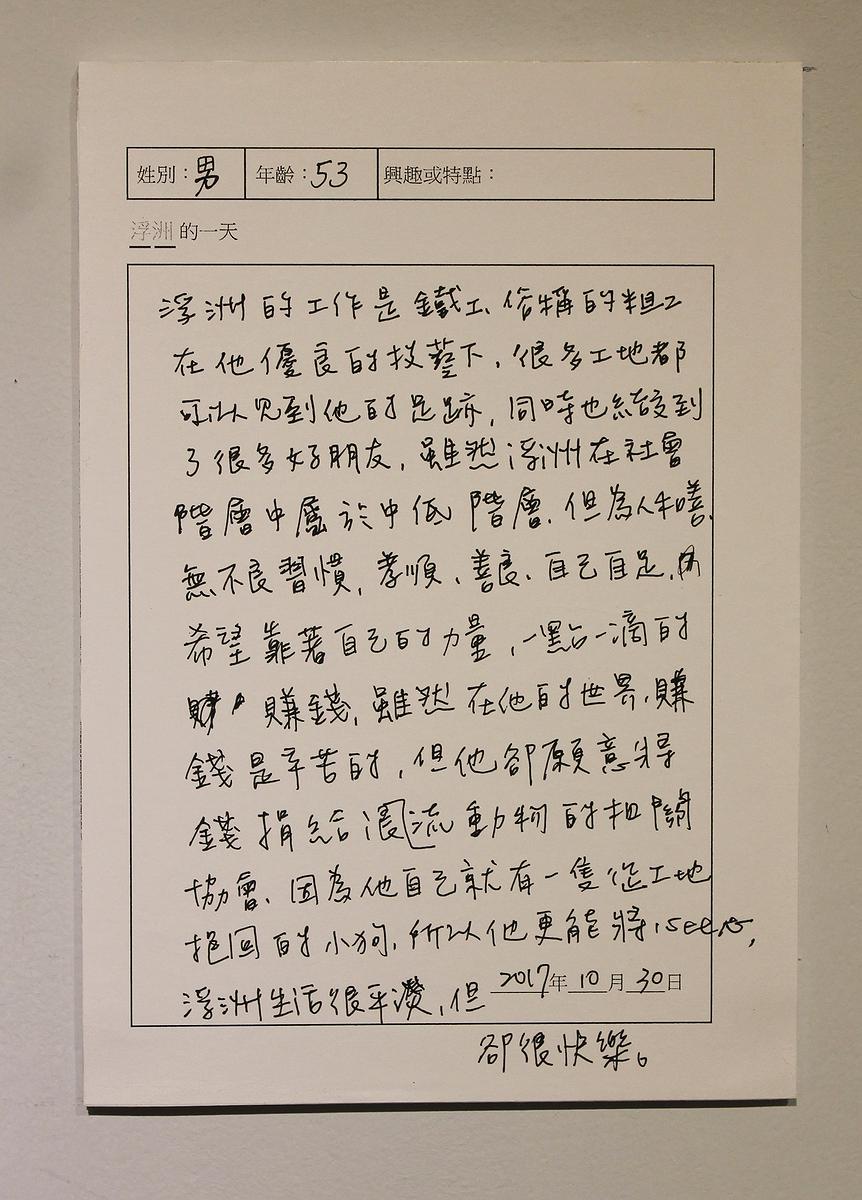 姓別：男 年齡：53 興趣或特點：
浮洲的一天
浮洲的工作是鐵工、俗稱的粗工
在他優良的技藝下，很多工地都
可以見到他的足跡，同時也結交到
了很多好朋友，雖然浮洲在社會
階層中屬於中低階層，但為人和善、
無不良習慣，孝順、善良、自己自足，
希望靠著自己的力量，一點一滴的
賺錢，雖然在他的世界，賺
錢是辛苦的，但他卻願意將
錢捐給流動物的相關
協會、因為他自己就有一隻從工地
抱回的小狗，所以他更能將
浮洲生活很平淡，但 2017年10月30日
卻很快樂。